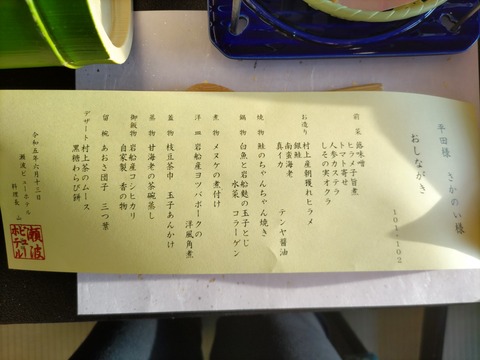 平田様 さかのい様
おしながき
101-102
前菜 藤味噌
ヒラメ子旨煮
トマト寄せ
人参カステラ
しその実オクラ
お造り 村上産朝獲れヒラメ
銀鮭
南蛮海老
真イカ テンヤ醤油
焼物 鮭のちゃんちゃん焼き
鍋物 白魚と岩船麩の玉子とじ
水菜 コラーゲン
煮物 メヌケの煮付け
洋皿 岩船産ヨツバポークの
洋風角煮
蓋物 枝豆茶巾 玉子あんかけ
蒸物 甘海老の茶碗蒸し
御飯物 岩船産コシヒカリ
自家製 香の物
留椀 あおさ団子 三つ葉
デザート 村上茶のムース
黒糖わらび餅
令和五年六月十三日
瀬波ビューホテル
料理長 山
瀬波
ビュー
ホテル